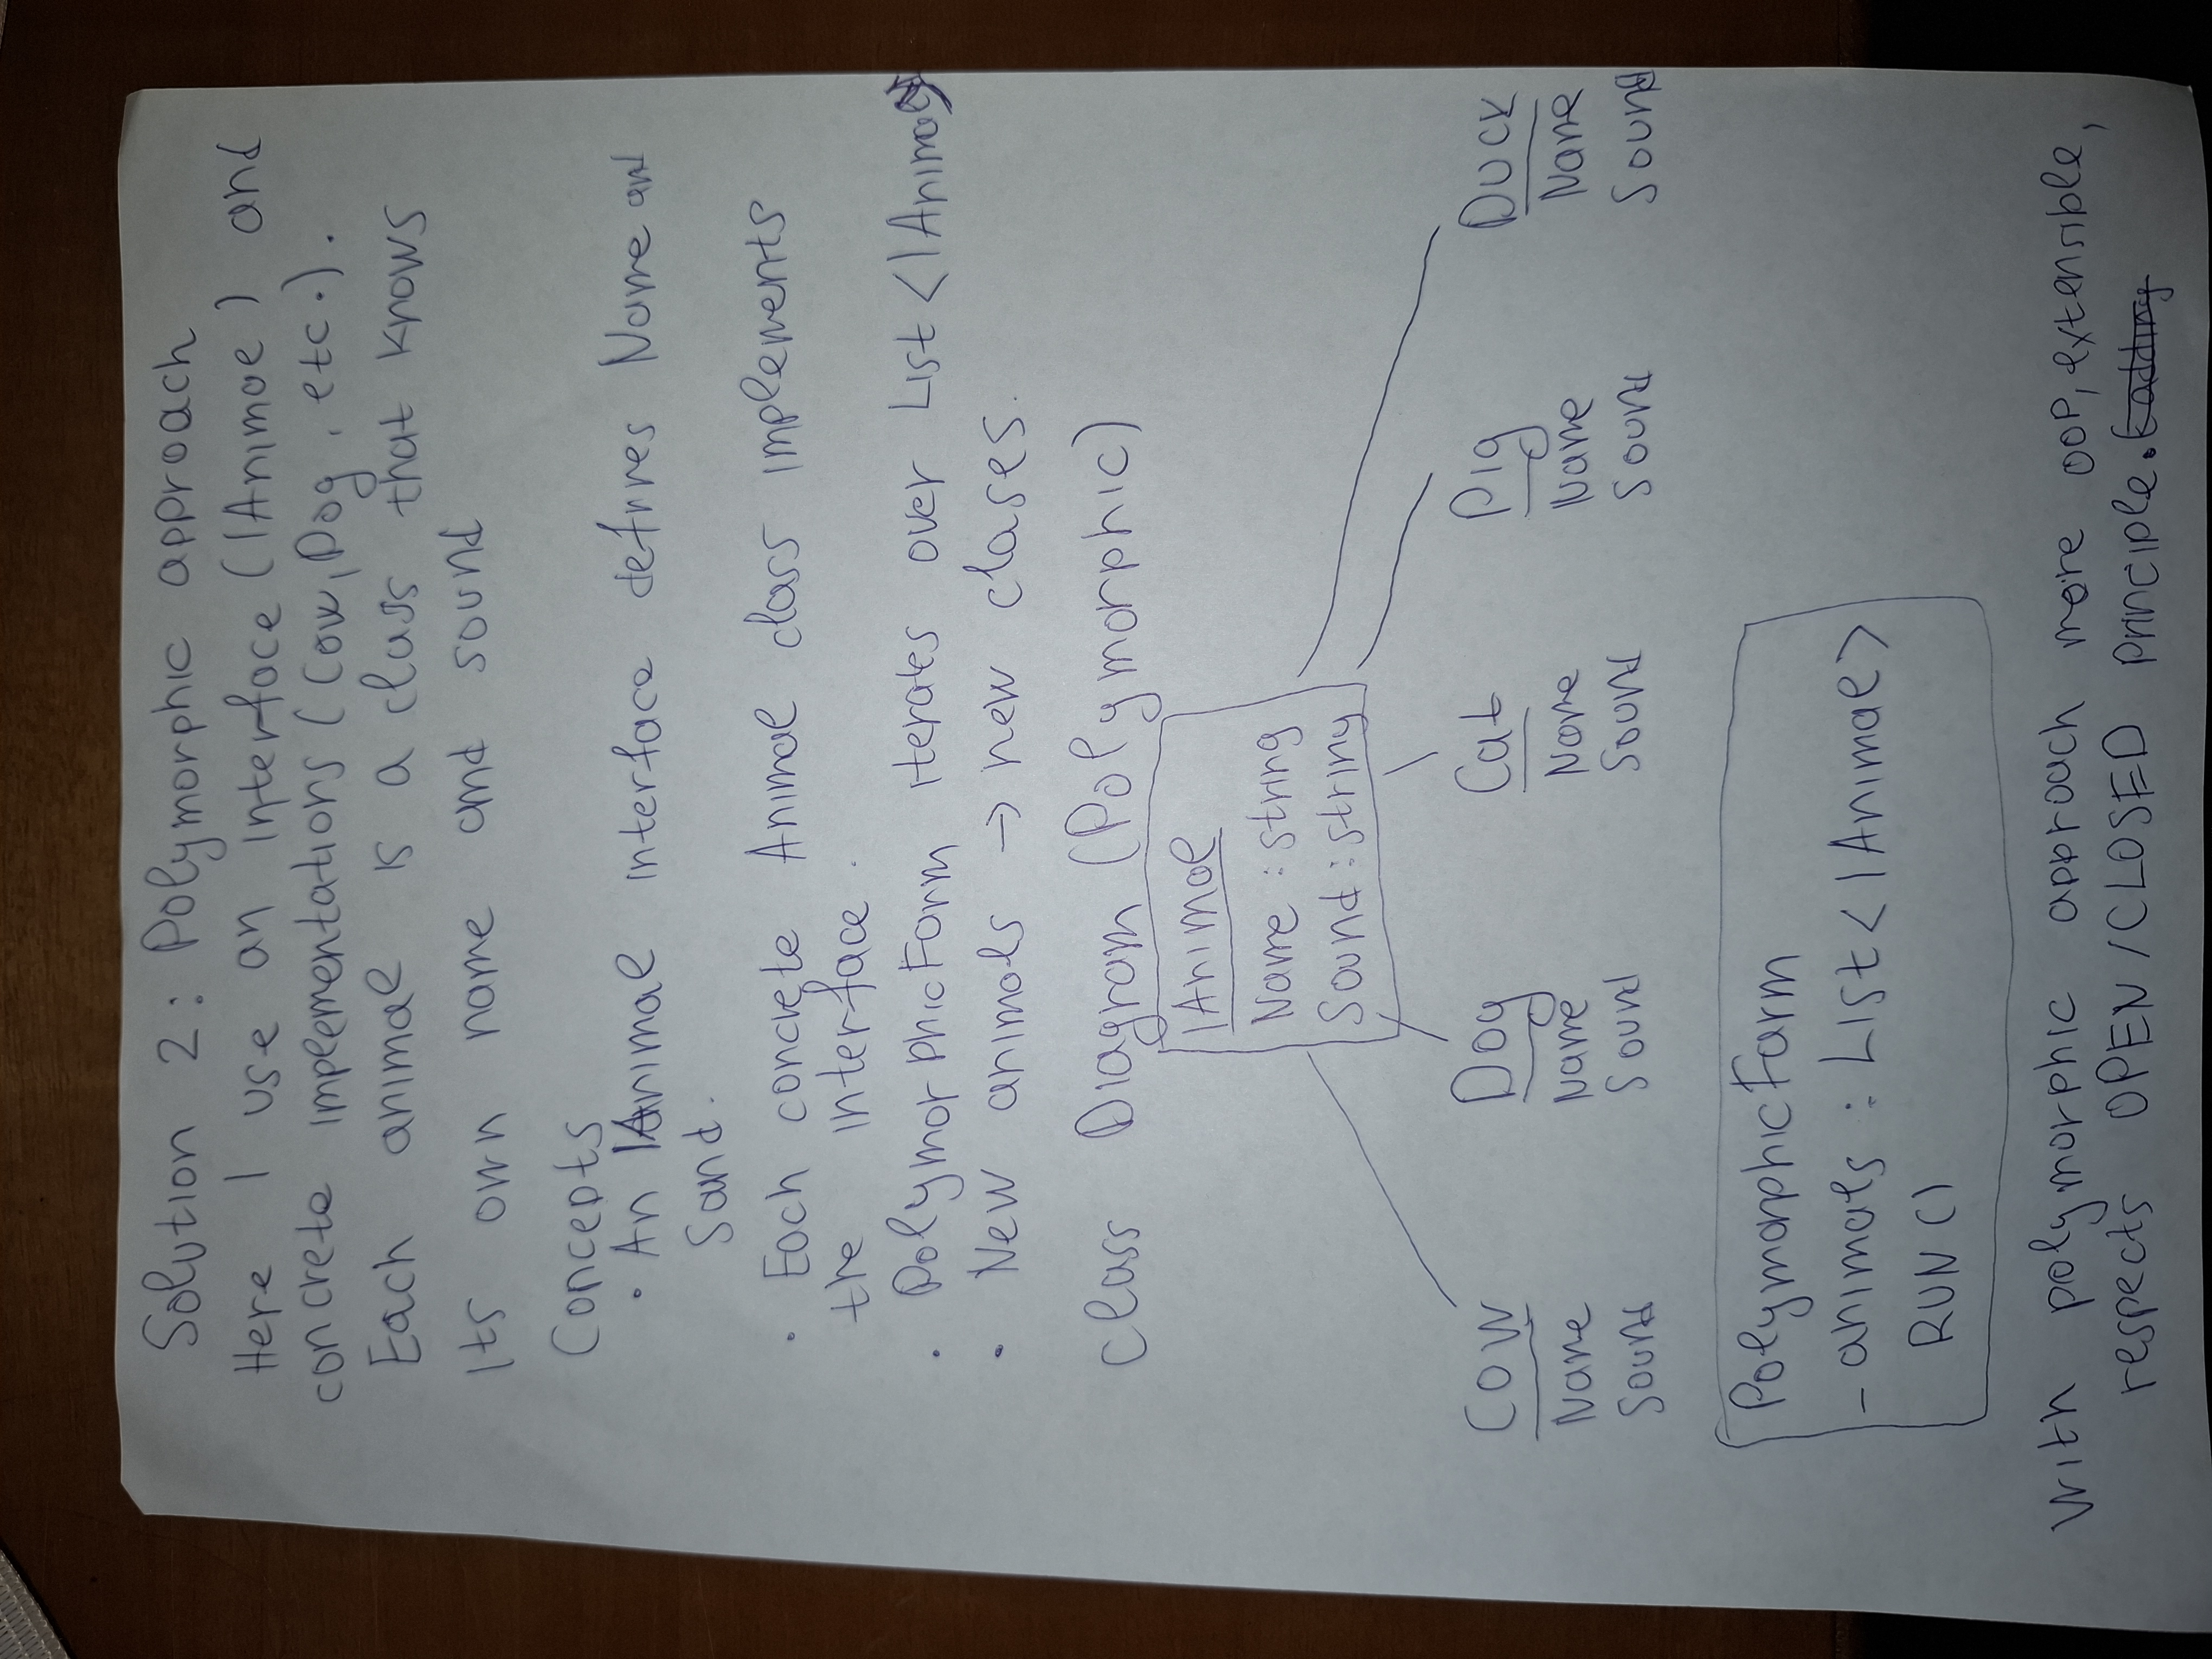 Solution 2: Polymorphic approach
Here I use an interface (IAnimal) and
concrete implementations (Cow, Dog, etc.).
Each animal is a class that knows
its own name and sound
Concepts
• An IAnimal interface defines Name and
Sound.
• Each concrete Animal class implements
the interface.
• PolymorphicFarm iterates over List<IAnimal>
• New animals → new clases.
Class Diagram (Polymorphic)
IAnimal
Name : string
Sound : string
Cow Dog Cat Pig Duck
Name Name Name Name Name
Sound Sound Sound Sound Sound
PolymorphicFarm
- animals : List<IAnimal>
RUN()
With polymorphic approach more OOP, extensible,
respects OPEN/CLOSED Principle.